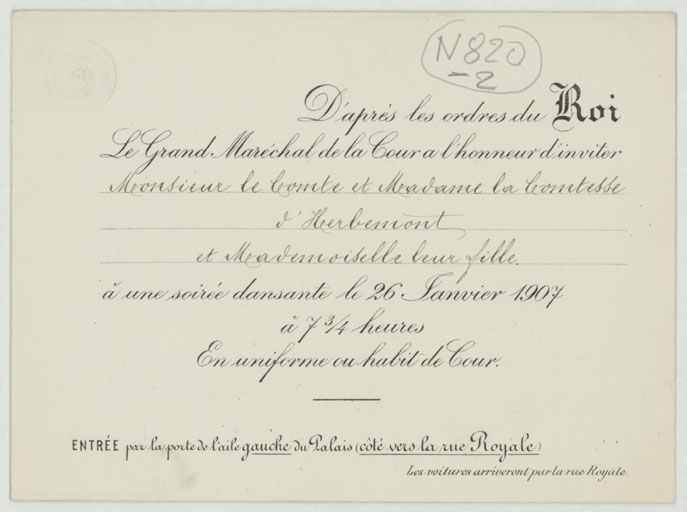 N820
-2
D'après les ordres du Roi
Le Grand Maréchal de la Cour a l'honneur d'inviter
Monsieur le Comte et Madame la Comtesse
d'Herbemont
et Mademoiselle leur fille.
à une soirée dansante le 26 Janvier 1907
à 7 3/4 heures
En uniforme ou habit de Cour.
ENTRÉE par la porte de l'aile gauche du Palais (côté vers la rue Royale)
Les voitures arriveront par la rue Royale.